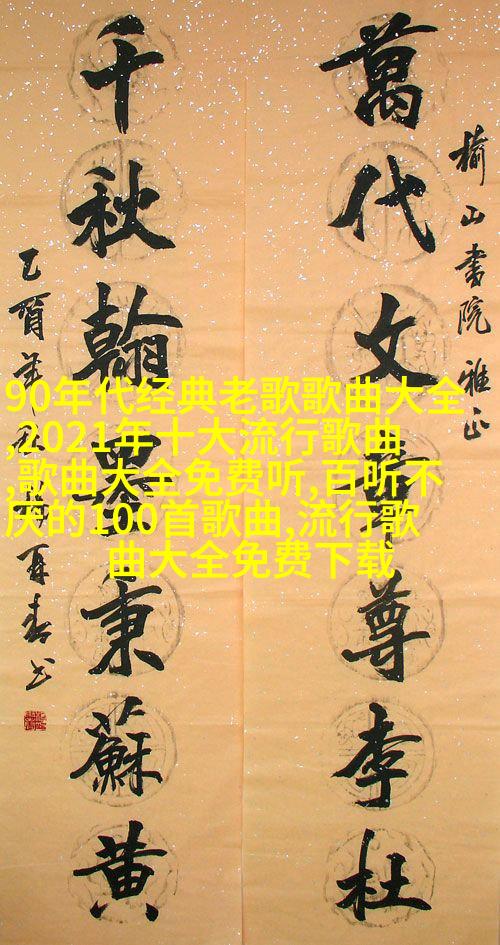 榆山書院雅正
萬代文章尊李杜
千秋翰墨秉蘇黄
乙酉年再春书
90年代经典老歌歌曲大全
,2021年十大流行歌曲
,歌曲大全免费听,百听不
厌的100首歌曲,流行歌
曲大全免费下载